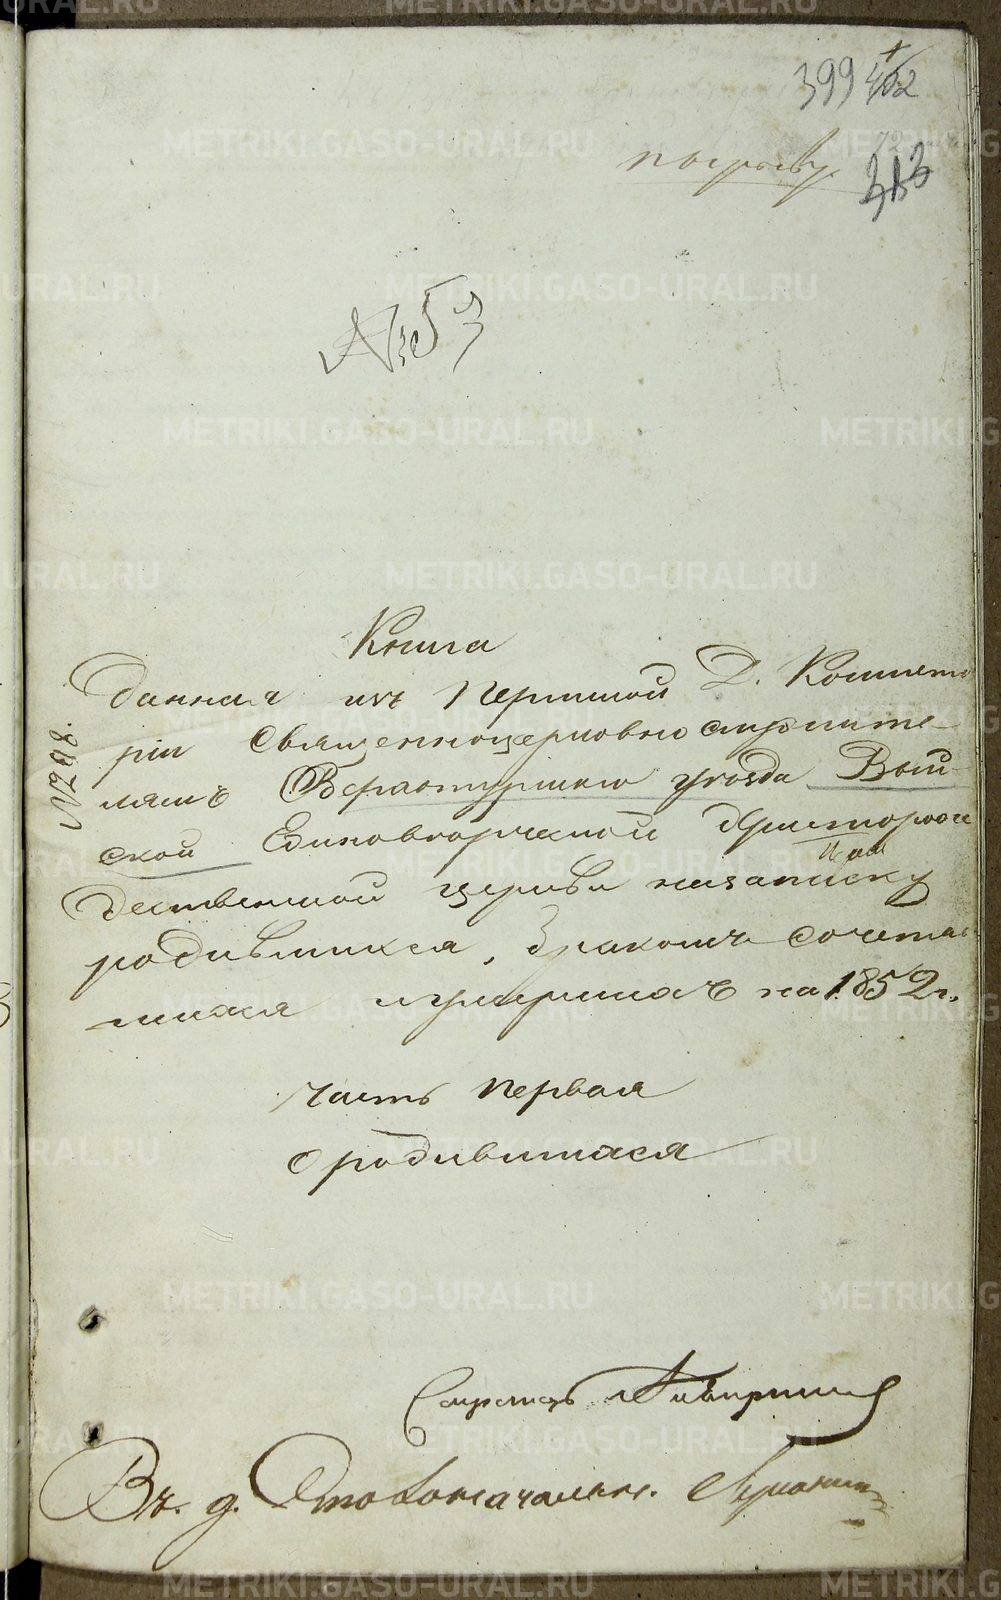 399 402
313
№ 53
№ 298.
Книга
Данная изъ Пермской Д. Консисто
ріи Священноцерковно служите-
лямъ Верхотурскаго уѣзда Выи-
ской Единовѣрческой Христорож
дественской церкви на записку
родившихся, бракомъ сочетав
шихся и умершихъ на 1852 г.
Часть Первая
О родившихся
Секретарь
Въ. д. Столоначальн.
METRIKI.GASO-URAL.RU